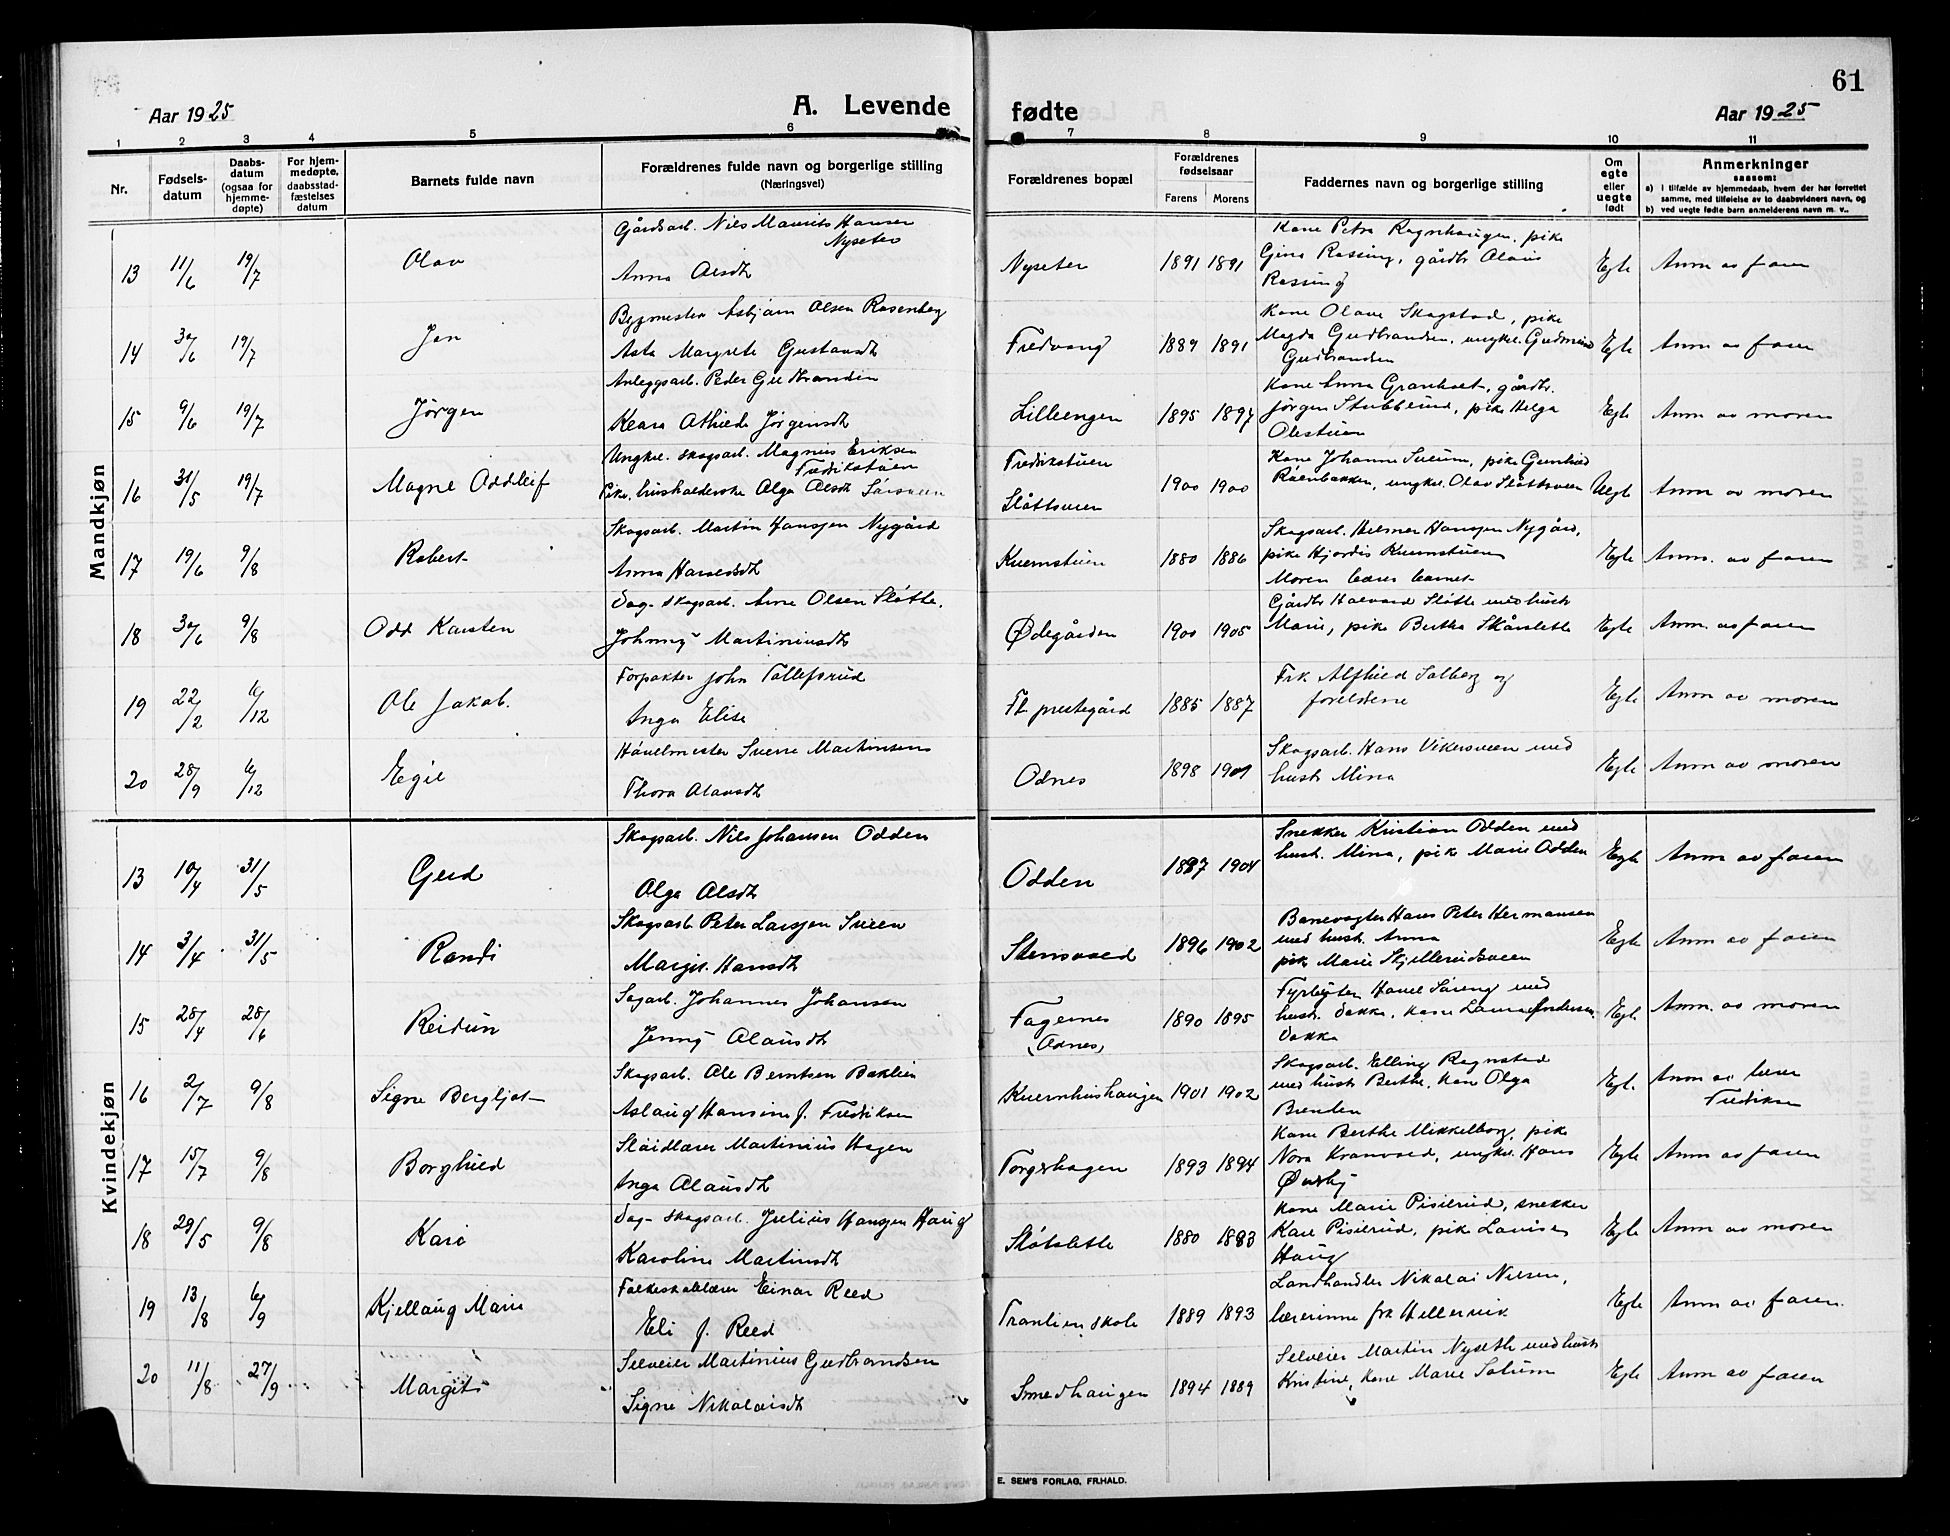 61
Aar 1925
A. Levende
fødte
Aar 1925
1 2 3 4 5 6 7 8 9 10 11
Nr.
Fødsels-
datum
Daabs-
datum
(ogsaa for
hjemme-
døpte)
For hjem-
medøpte,
daabsstad-
fæstelses
datum
Barnets fulde navn
Forældrenes fulde navn og borgerlige stilling
(Næringsvei)
Forældrenes bopæl
Forældrenes
fødselsaar
Farens Morens
Faddernes navn og borgerlige stilling
Om
egte
eller
uegte
født
Anmerkninger
saasom:
a) i tilfælde av hjemmedaab, hvem der har forrettet
samme, med tilføielse av to daabsvidners navn, og
b) ved uegte fødte barn anmelderens navn m. v..
Mandkjøn
13 11/6 19/7 Olav
Gårdsarb. Nils Maurits Hansen
Nyseter
Anna Olsdt
Nyseter 1891 1891
Kone Petra Rognhaugen, pike
Gina Rossing, gårdbr Olaus
Rossing
Egte Anm av faren
14 30/6 19/7 Jan
Bygmester Asbjørn Olsen Rosenberg
Asta Margrete Gustavsdt
Fredvang 1889 1891
Kone Olave Skogstad, pike
Magda Gudbrandsen, ungkr. Gudmund
Gudbrandsen
Egte Anm av faren
15 9/6 19/7 Jørgen
Anleggsarb. Peder Gudbrandsen
Klara Athilde Jørgensdt
Lilleengen 1895 1897
Kone Anna Granholt, gårdbr.
Jørgen Stubblund, pike Helga
Olestuen
Egte Anm av moren
16 31/5 19/7 Magne Oddleif
Ungkr. skogsarb. Magnus Eriksen
Fredikstuen
Pike, husholderske Olga Olsdt Sørsveen
Fredikstuen
Slåttsveen
1900 1900
Kone Johanne Sveum, pike Gunhild
Røenbakken, ungkr. Olav Slåttsveen
Uegte Anm av moren
17 19/6 9/8 Robert
Skogsarb. Martin Hansen Nygård
Anna Haraldsdt
Kvernstuen 1880 1886
Skogsarb. Helmer Hansen Nygård,
pike Hjordis Kvernstuen
Moren bærer barnet
Egte Anm. av faren
18 30/6 9/8 Odd Karsten
Dag- skogsarb. Arne Olsen Sløtte.
Johnny Martiniusdt
Ødegården 1900 1905
Gårdbr Halvard Sløtte med hustr
Marie, pike Bertha Skårslette
Egte Anm. av faren
19 22/2 6/12 Ole Jakob.
Forpakter John Tollefsrud
Inga Elise
Fl. prestegård 1885 1887
Frk. Alfhild Solberg og
foreldrene
Egte Anm av moren
20 28/9 6/12 Egil
Høvelmester Sverre Martinsen
Thora Olausdt
Odnes 1898 1901
Skogsarb. Hans Vikersveen med
hustr Mina
Egte Anm av moren
Kvindekjøn
13 10/4 31/5 Gerd
Skogsarb. Nils Johansen Odden
Olga Olsdt
Odden 1897 1904
Snekker Kristian Odden med
hustr. Mina, pik Marie Odden
Egte Anm av faren
14 3/4 31/5 Randi
Skogsarb. Peter Larsen Sveen
Margit Hansdt
Stensvold 1896 1902
Banevogter Hans Peter Hermansen
med hustr. Anna
pike Marie Skjellerudsveen
Egte Anm av faren
15 28/4 28/6 Reidun
Sagarb. Johannes Johansen
Jenny Olausdt
Fagernes
(Odnes)
1890 1895
Fyrbøter Havel Søreng med
hustr. Dokka, kone Laura Andersen
Dokka
Egte Anm av moren
16 2/7 9/8 Signe Bergljot
Skogsarb. Ole Berntsen Baklien
Aslaug Hansine f. Frediksen
Kvernhushaugen 1901 1902
Skogsarb. Elling Rognstad
med hustr Berthe, kone Olga
Brenden
Egte. Anm av lærer
Frediksen
17 15/7 9/8 Borghild
Sløidlærer Martinius Hagen
Inga Olausdt
Torgshagen 1893 1894
Kone Berthe Mikkelborg, pike
Nora Kronvold, ungkr. Hans
Ørudby
Egte Anm av faren
18 29/5 9/8 Karo
Dag- skogsarb. Julius Hansen Haug
Karoline Martinsdt
Sløtslette 1880 1883
Kone Marie Pisilrud, snekker
Kare Pisilrud, pik Lovise
Haug
Egte Anm av moren
19 13/8 6/9 Kjellaug Marie
Folkeskolelærer Einar Reed
Eli f. Reed
Tranlien skole 1889 1893
Landhandler Nikolai Nilsen,
lærerinne frk Hellervik
Egte Anm av faren.
20 11/8 27/9 Margit
Selveier Martinius Gudbrandsen
Signe Nikolaisdt
Smedhaugen 1894 1889
Selveier Martin Nyseth med hustr
Kristine, kone Marie Solum
Egte Anm av faren
E. SEM'S FORLAG, FR.HALD.